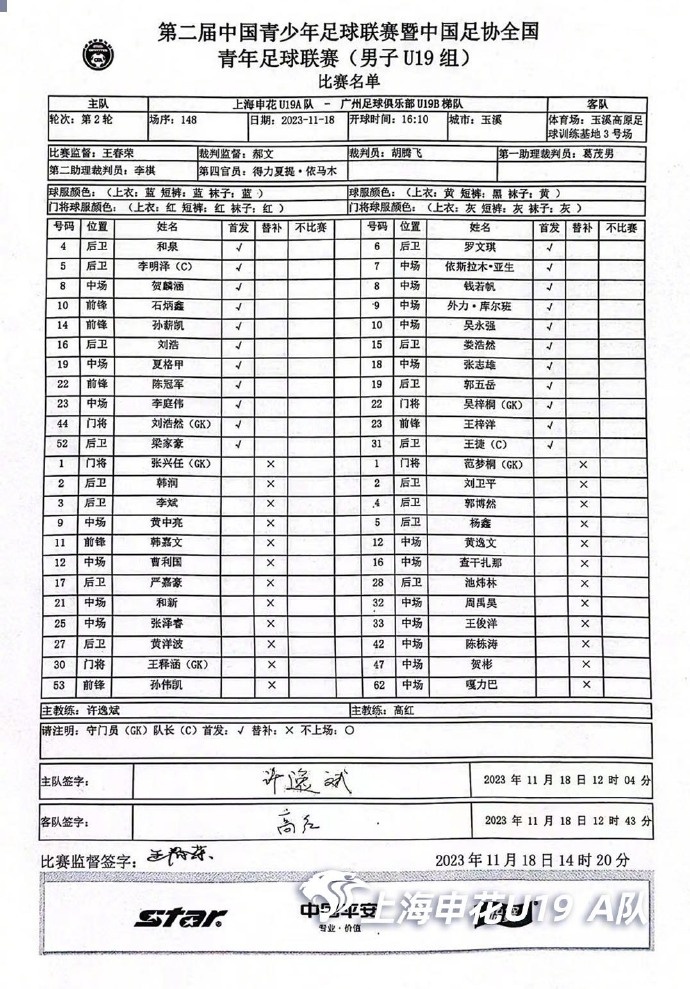 第二届中国青少年足球联赛暨中国足协全国
青年足球联赛（男子 U19 组）
比赛名单
主队 上海申花 U19A 队 - 广州足球俱乐部 U19B 梯队 客队
轮次：第 2 轮 场序：148 日期：2023-11-18 开球时间：16:10 城市：玉溪 体育场：玉溪高原足
球训练基地 3 号场
比赛监督：王春荣 裁判监督：郝文 裁判员：胡腾飞 第一助理裁判员：葛茂男
第二助理裁判员：李棋 第四官员：得力夏提·依马木
球服颜色：（上衣：蓝 短裤：蓝 袜子：蓝 ） 球服颜色：（上衣：黄 短裤：黑 袜子：黄 ）
门将球服颜色：（上衣：红 短裤：红 袜子：红 ） 门将球服颜色：（上衣：灰 短裤：灰 袜子：灰 ）
号码 位置 姓名 首发 替补 不比赛 号码 位置 姓名 首发 替补 不比赛
4 后卫 和泉 √ 6 后卫 罗文琪 √
5 后卫 李明泽（C） √ 7 中场 依斯拉木·亚生 √
8 中场 贺麟涵 √ 8 中场 钱若帆 √
10 前锋 石炳鑫 √ 9 中场 外力·库尔班 √
14 前锋 孙薪凯 √ 10 中场 吴永强 √
16 后卫 刘浩 √ 15 后卫 娄浩然 √
19 中场 夏格甲 √ 18 中场 张志雄 √
22 前锋 陈冠军 √ 19 后卫 郭五岳 √
23 中场 李庭伟 √ 22 门将 吴梓桐（GK） √
44 门将 刘浩然（GK） √ 23 前锋 王梓洋 √
52 后卫 梁家豪 √ 31 后卫 王捷（C） √
1 门将 张兴任（GK） × 1 门将 范梦桐（GK） ×
2 后卫 韩润 × 2 后卫 刘卫平 ×
3 后卫 李斌 × 4 后卫 郭博然 ×
9 中场 黄中亮 × 5 后卫 杨鑫 ×
11 前锋 韩嘉文 × 12 中场 黄逸文 ×
12 中场 曹利国 × 16 中场 查干扎那 ×
17 后卫 严嘉豪 × 28 后卫 池炜林 ×
21 中场 和新 × 32 中场 周禹昊 ×
25 中场 张泽睿 × 33 中场 王俊洋 ×
27 后卫 黄洋波 × 42 中场 陈栋涛 ×
30 门将 王释涵（GK） × 47 中场 贺彬 ×
53 前锋 孙伟凯 × 62 中场 嘎力巴 ×
主教练：许逸斌 主教练：高红
请注明：守门员（GK）队长（C）首发：√ 替补：× 不上场：○
主队签字： 许逸斌 2023 年 11 月 18 日 12 时 04 分
客队签字： 高红 2023 年 11 月 18 日 12 时 43 分
比赛监督签字：王春荣 2023 年 11 月 18 日 14 时 20 分
star. 中国平安
专业·价值
上海申花U19 A队